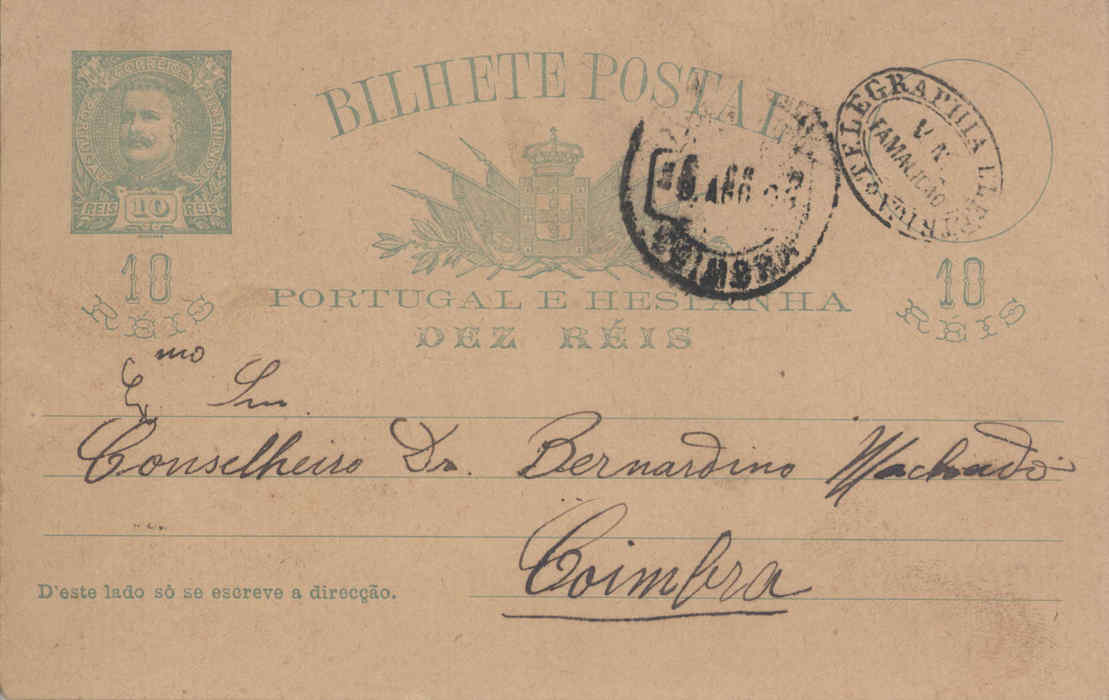 CORREIOS
REIS 10 REIS
BILHETE POSTAL
TELEGRAPHIA ELECTRICA
V. N.
FAMALICÃO
COIMBRA
PORTUGAL E HESPANHA
DEZ RÉIS
10
RÉIS
10
RÉIS
Exmo Snr.
Conselheiro Dr. Bernardino Machado
Coimbra
D'este lado só se escreve a direcção.